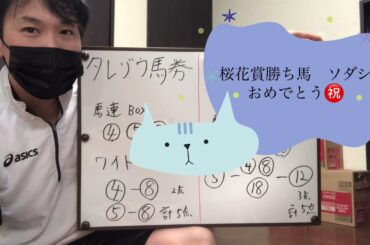 タレゾウ馬券
桜花賞勝ち馬 ソダシ
おめでとう㊗
馬連 BOX
④
ワイド
④-⑧ 2点
⑤-⑧ 計5点
⑤-④⑧-⑫
⑱
3点
計5点
asics